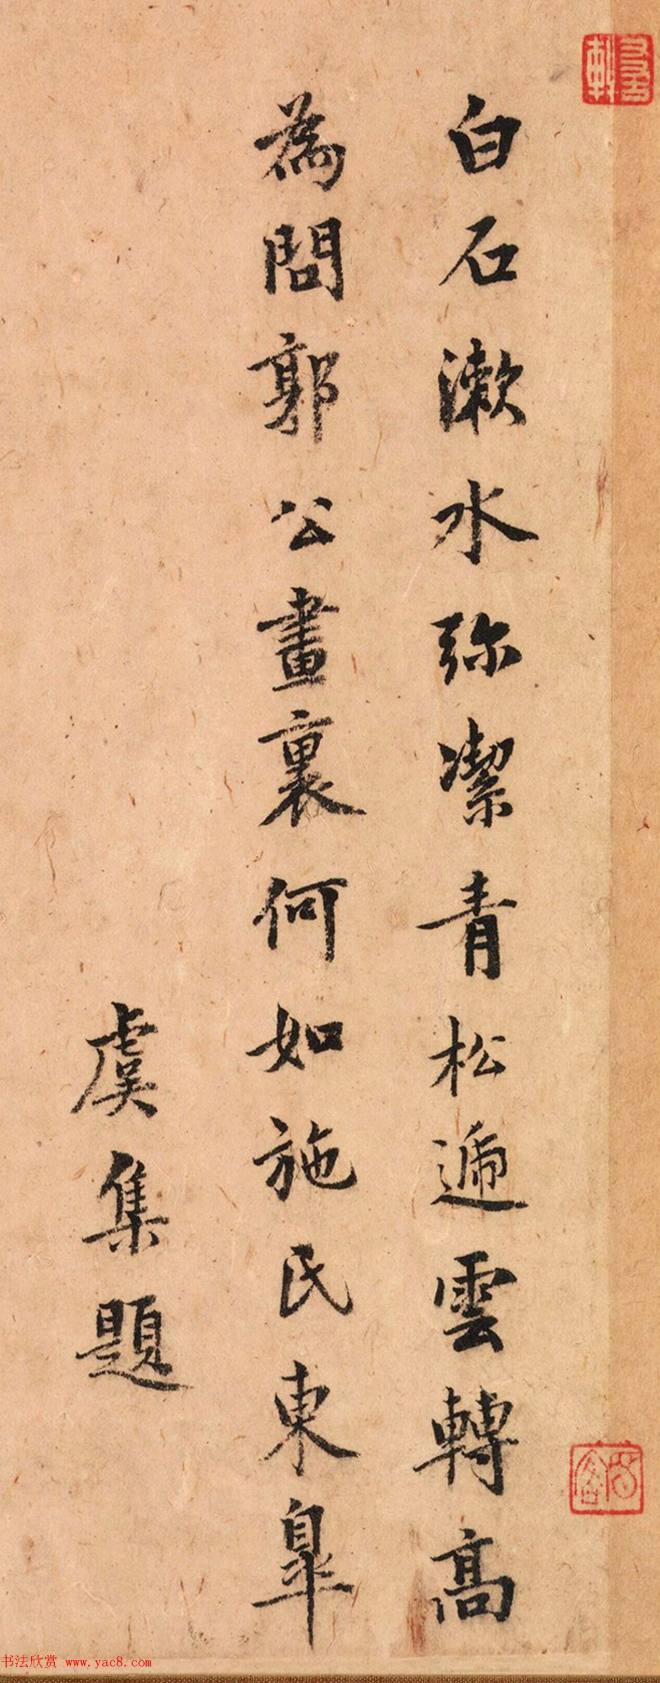 白石漱水弥潔青松遞雲轉高
為問郭公畫裏何如施氏東皐
虞集題
书法欣赏 www.yac8.com